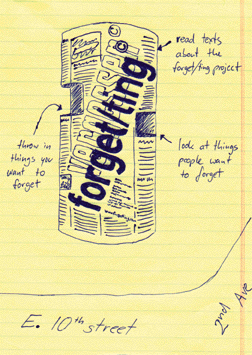 read texts
about the
forget/ting project
forget/ting
throw in
things you
want to
forget
look at things
people want
to forget
E. 10th street
2nd Ave